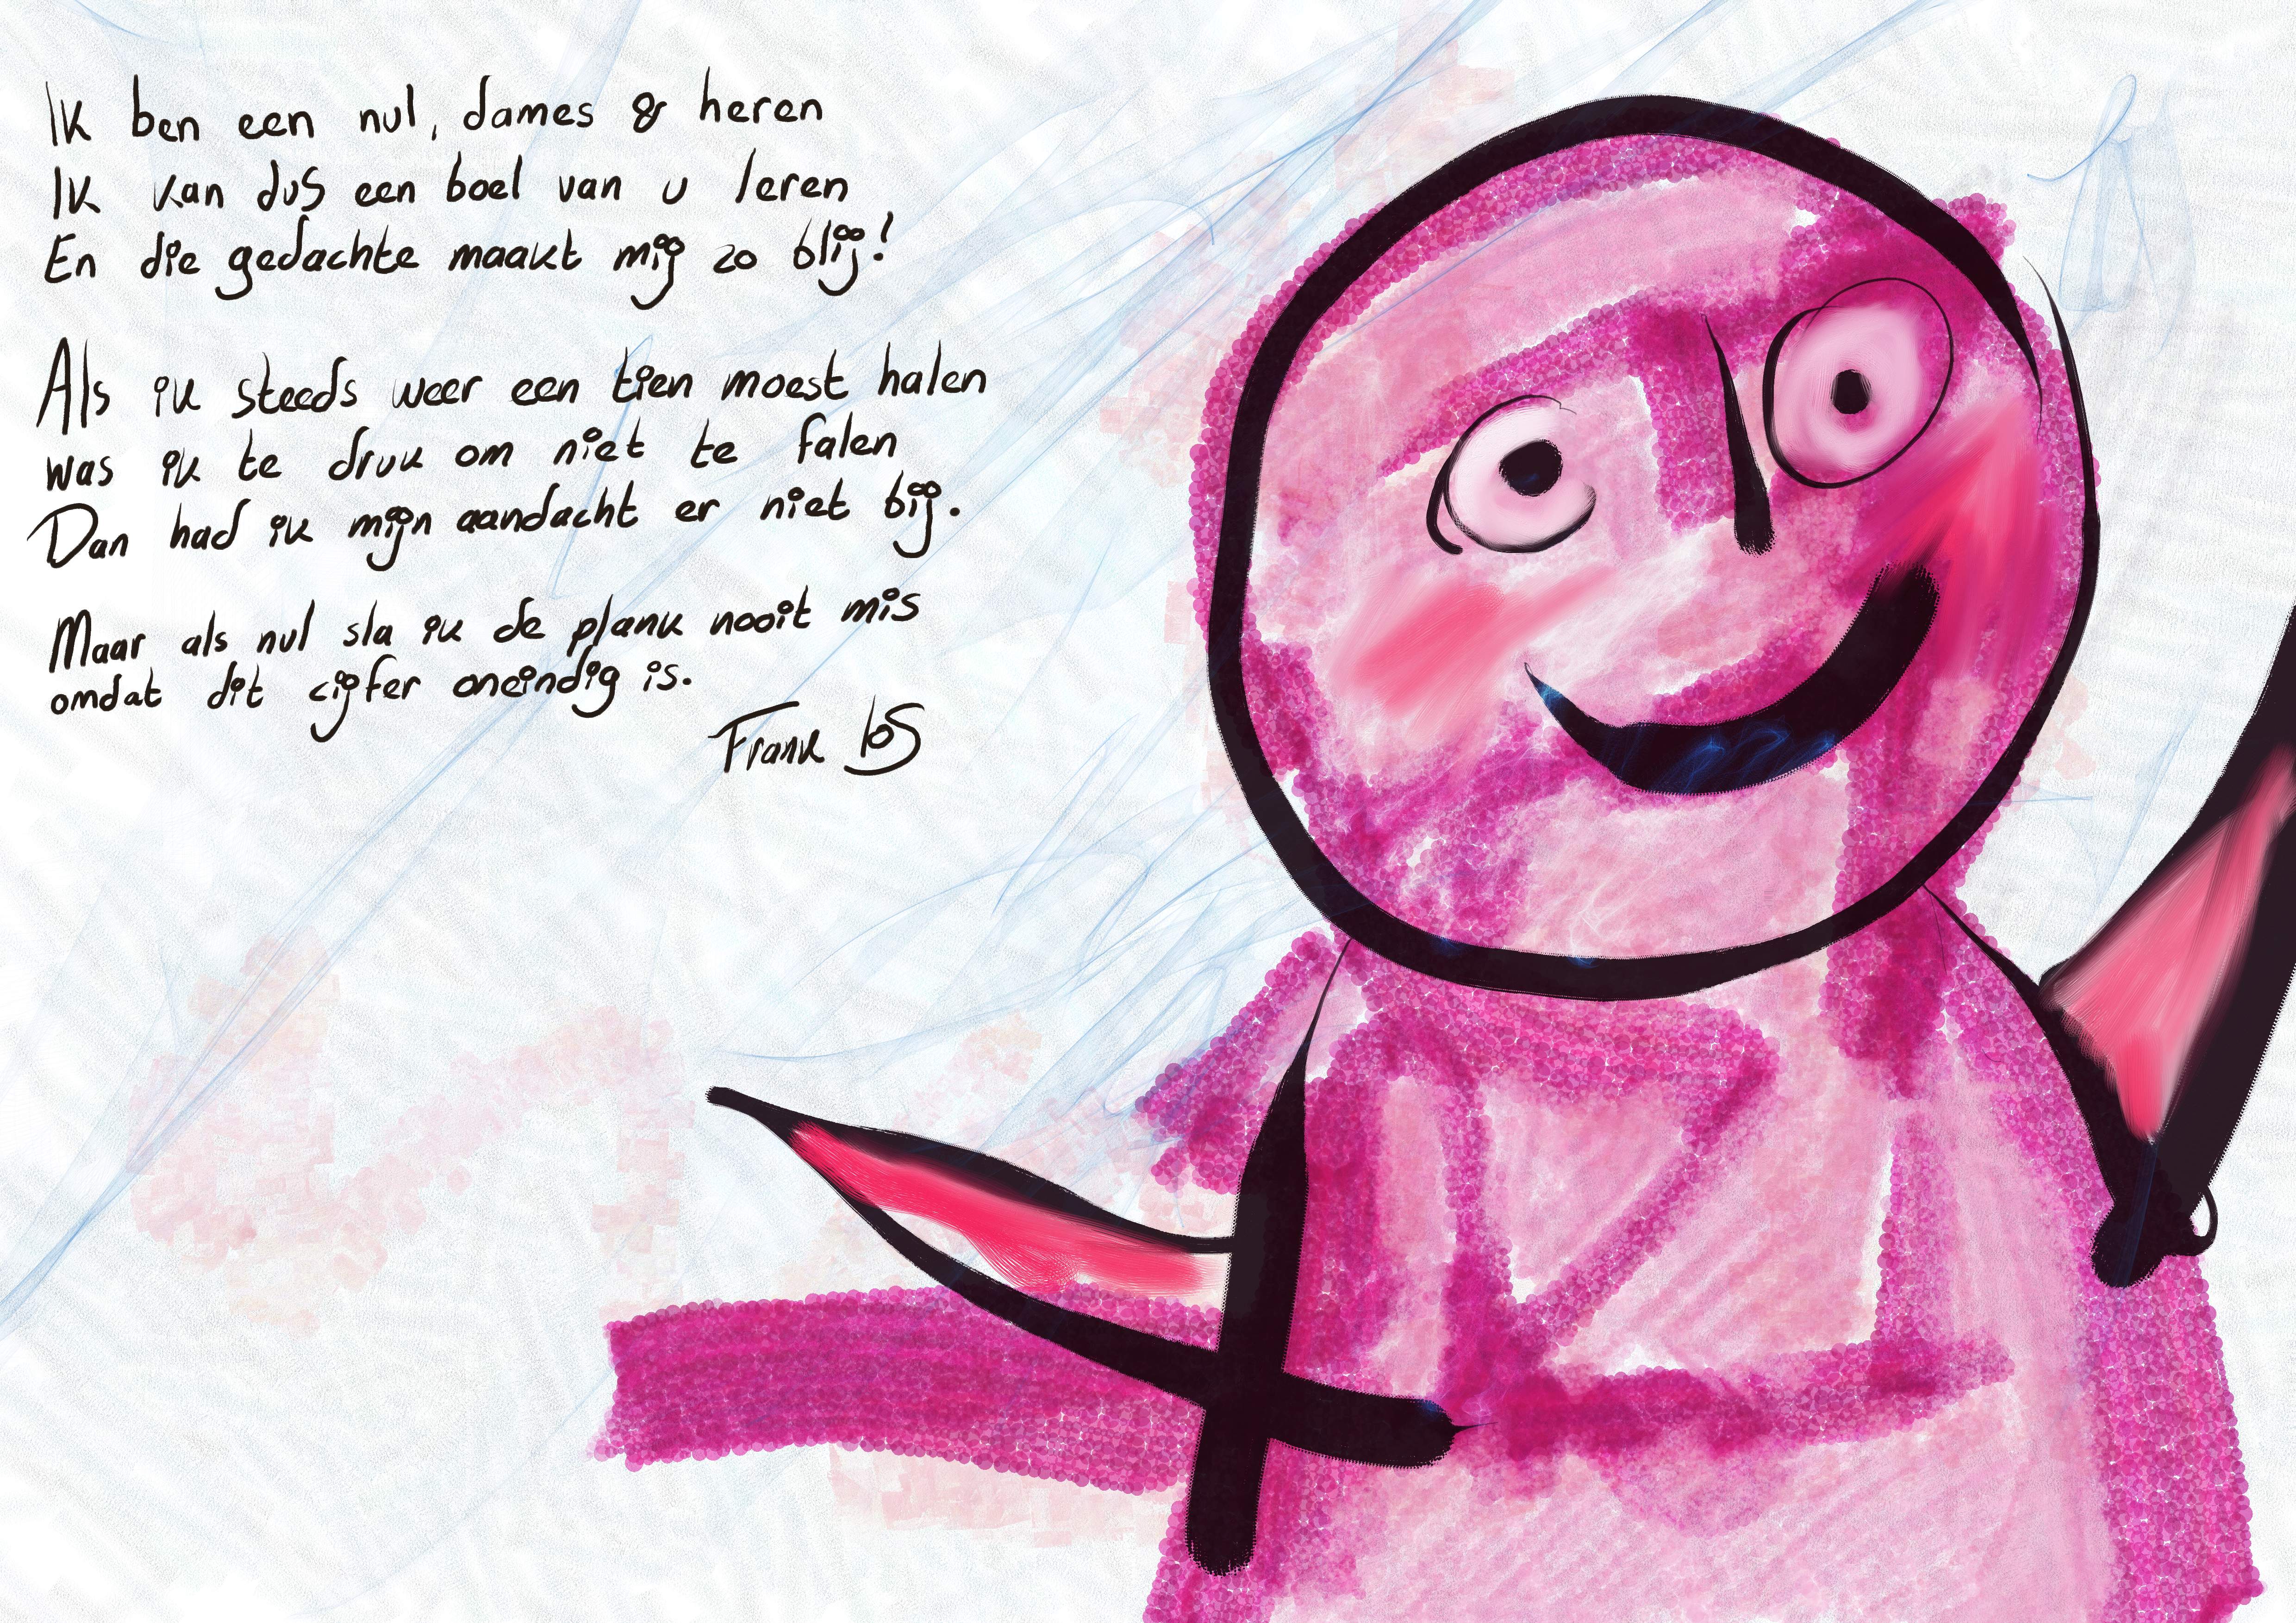 Ik ben een nul, dames & heren
Ik kan dus een boel van u leren
En die gedachte maakt mij zo blij!
Als ik steeds weer een tien moest halen
was ik te druk om niet te falen
Dan had ik mijn aandacht er niet bij.
Maar als nul sla ik de plank nooit mis
omdat dit cijfer oneindig is.
Frank Los